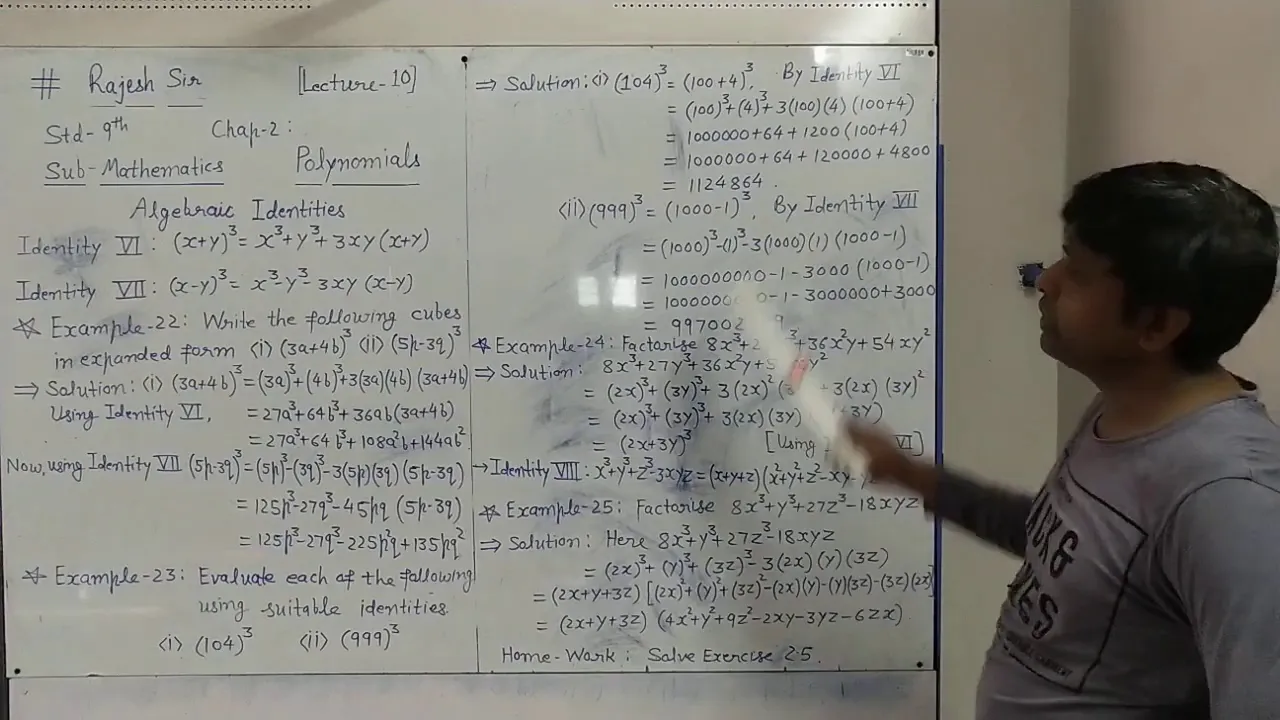 # Rajesh Sir [Lecture-10]
Std-9th Chap-2:
Sub-Mathematics Polynomials
Algebraic Identities
Identity VI: (x+y)³= x³+y³+3xy(x+y)
Identity VII: (x-y)³= x³-y³-3xy (x-y)
☆ Example-22: Write the following cubes
in expanded form <i> (3a+4b)³ <ii> (5p-3q)³
⇒ Solution: <i> (3a+4b)³=(3a)³+(4b)³+3(3a)(4b)(3a+4b)
Using Identity VI, = 27a³+64b³+36ab(3a+4b)
= 27a³+64b³+108a²b+144ab²
Now, using Identity VII (5p-3q)³=(5p)³-(3q)³-3(5p)(3q)(5p-3q)
= 125p³-27q³-45pq (5p-3q)
= 125p³-27q³-225p²q+135pq²
☆ Example-23: Evaluate each of the following
using suitable identities.
<i> (104)³ <ii> (999)³
⇒ Solution: <i> (104)³ = (100+4)³, By Identity VI
= (100)³+(4)³+3(100)(4)(100+4)
= 1000000+64+1200(100+4)
= 1000000+64+120000+4800
= 1124864.
<ii> (999)³= (1000-1)³, By Identity VII
=(1000)³-(1)³-3(1000)(1)(1000-1)
= 1000000000-1-3000(1000-1)
= 1000000 0-1-3000000+3000
= 997002 9
☆ Example-24: Factorise 8x³+2 ³+36x²y+54xy²
⇒ Solution: 8x³+27y³+36x²y+5 y²
= (2x)³+(3y)³+3(2x)²(3 +3(2x)(3y)²
= (2x)³+(3y)³+3(2x)(3y) +3y)
= (2x+3y)³ [Using VI]
→ Identity VIII: x³+y³+z³-3xyz=(x+y+z)(x²+y²+z²-xy-yz
☆ Example-25: Factorise 8x³+y³+27z³-18xyz
⇒ Solution: Here 8x³+y³+27z³-18xyz
= (2x)³+(y)³+(3z)³-3(2x)(y)(3z)
= (2x+y+3z)[(2x)²+(y)²+(3z)²-(2x)(y)-(y)(3z)-(3z)(2x)]
= (2x+y+3z)(4x²+y²+9z²-2xy-3yz-6zx)
Home-Work: Solve Exercise 2.5.